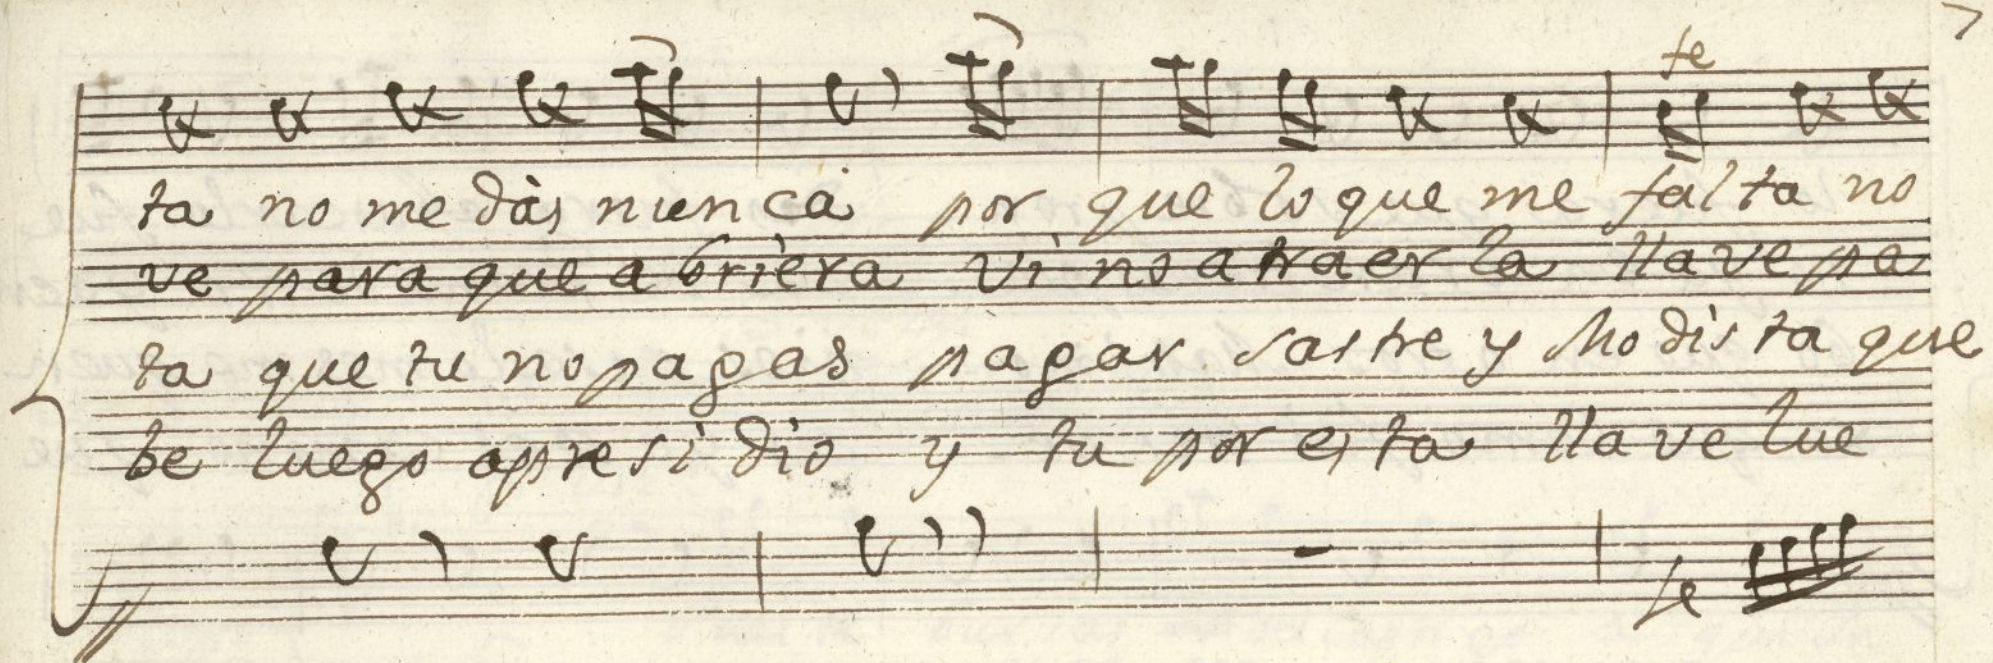 fe
ta no me dàs nunca por que lo que me falta no
ve para que abriera vino a traer la llave pa
ta que tu no pagas pagar sastre y Modista que
be luego apresidio y tu por esta llave lue
fe